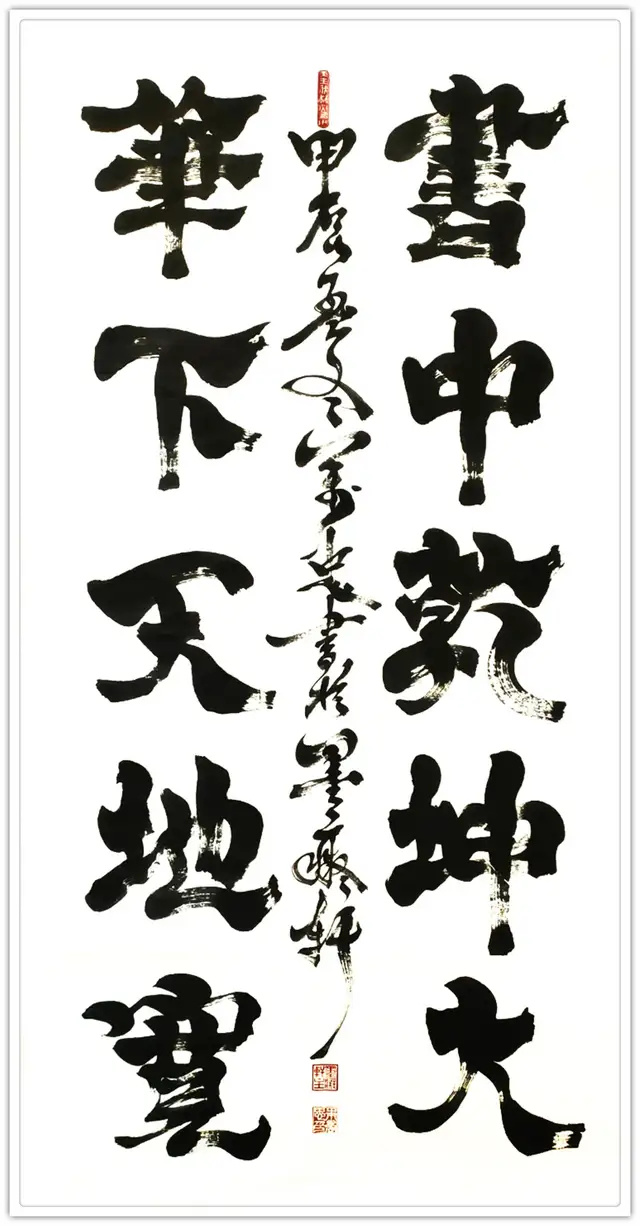 書中乾坤大
筆下天地寬
甲辰孟冬萬忠書於墨軒